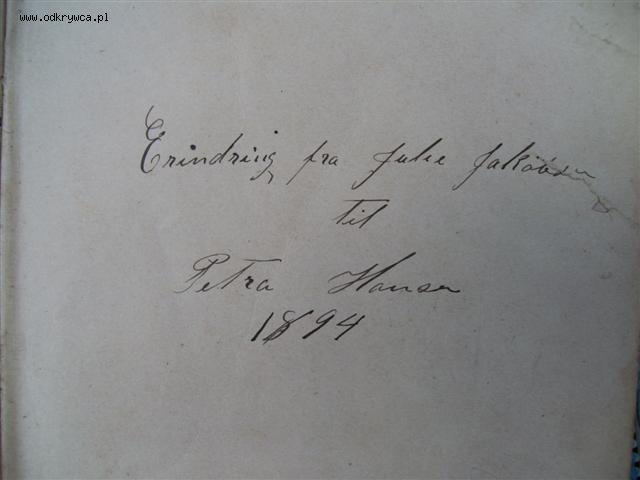 www.odkrywca.pl
Erindring fra Julie Jakobsen
til
Petra Hansen
1894